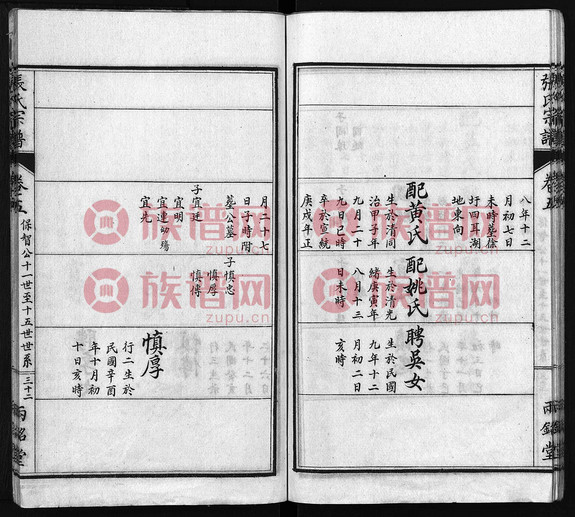 張氏宗譜
卷五
兩銘堂
八年十二
月初七日
未時葬徐
圩四耳湖
地東向
配黃氏
生於清同
治甲子年
九月二十
九日巳時
卒於宣統
庚戌年正
配姚氏
生於清光
緒庚寅年
八月十三
日未時
聘吳女
生於民國
九年十二
月初二日
亥時
月二十七
日子時附
葬公墓
子宜廷
宜明
宜連幼殤
宜九
子慎忠
慎厚
慎傳
慎厚
行二生於
民國辛酉
年十月初
十日亥時
張氏宗譜
卷五
保智公十一世至十五世世系
三十二
兩銘堂
族谱网
zupu.cn